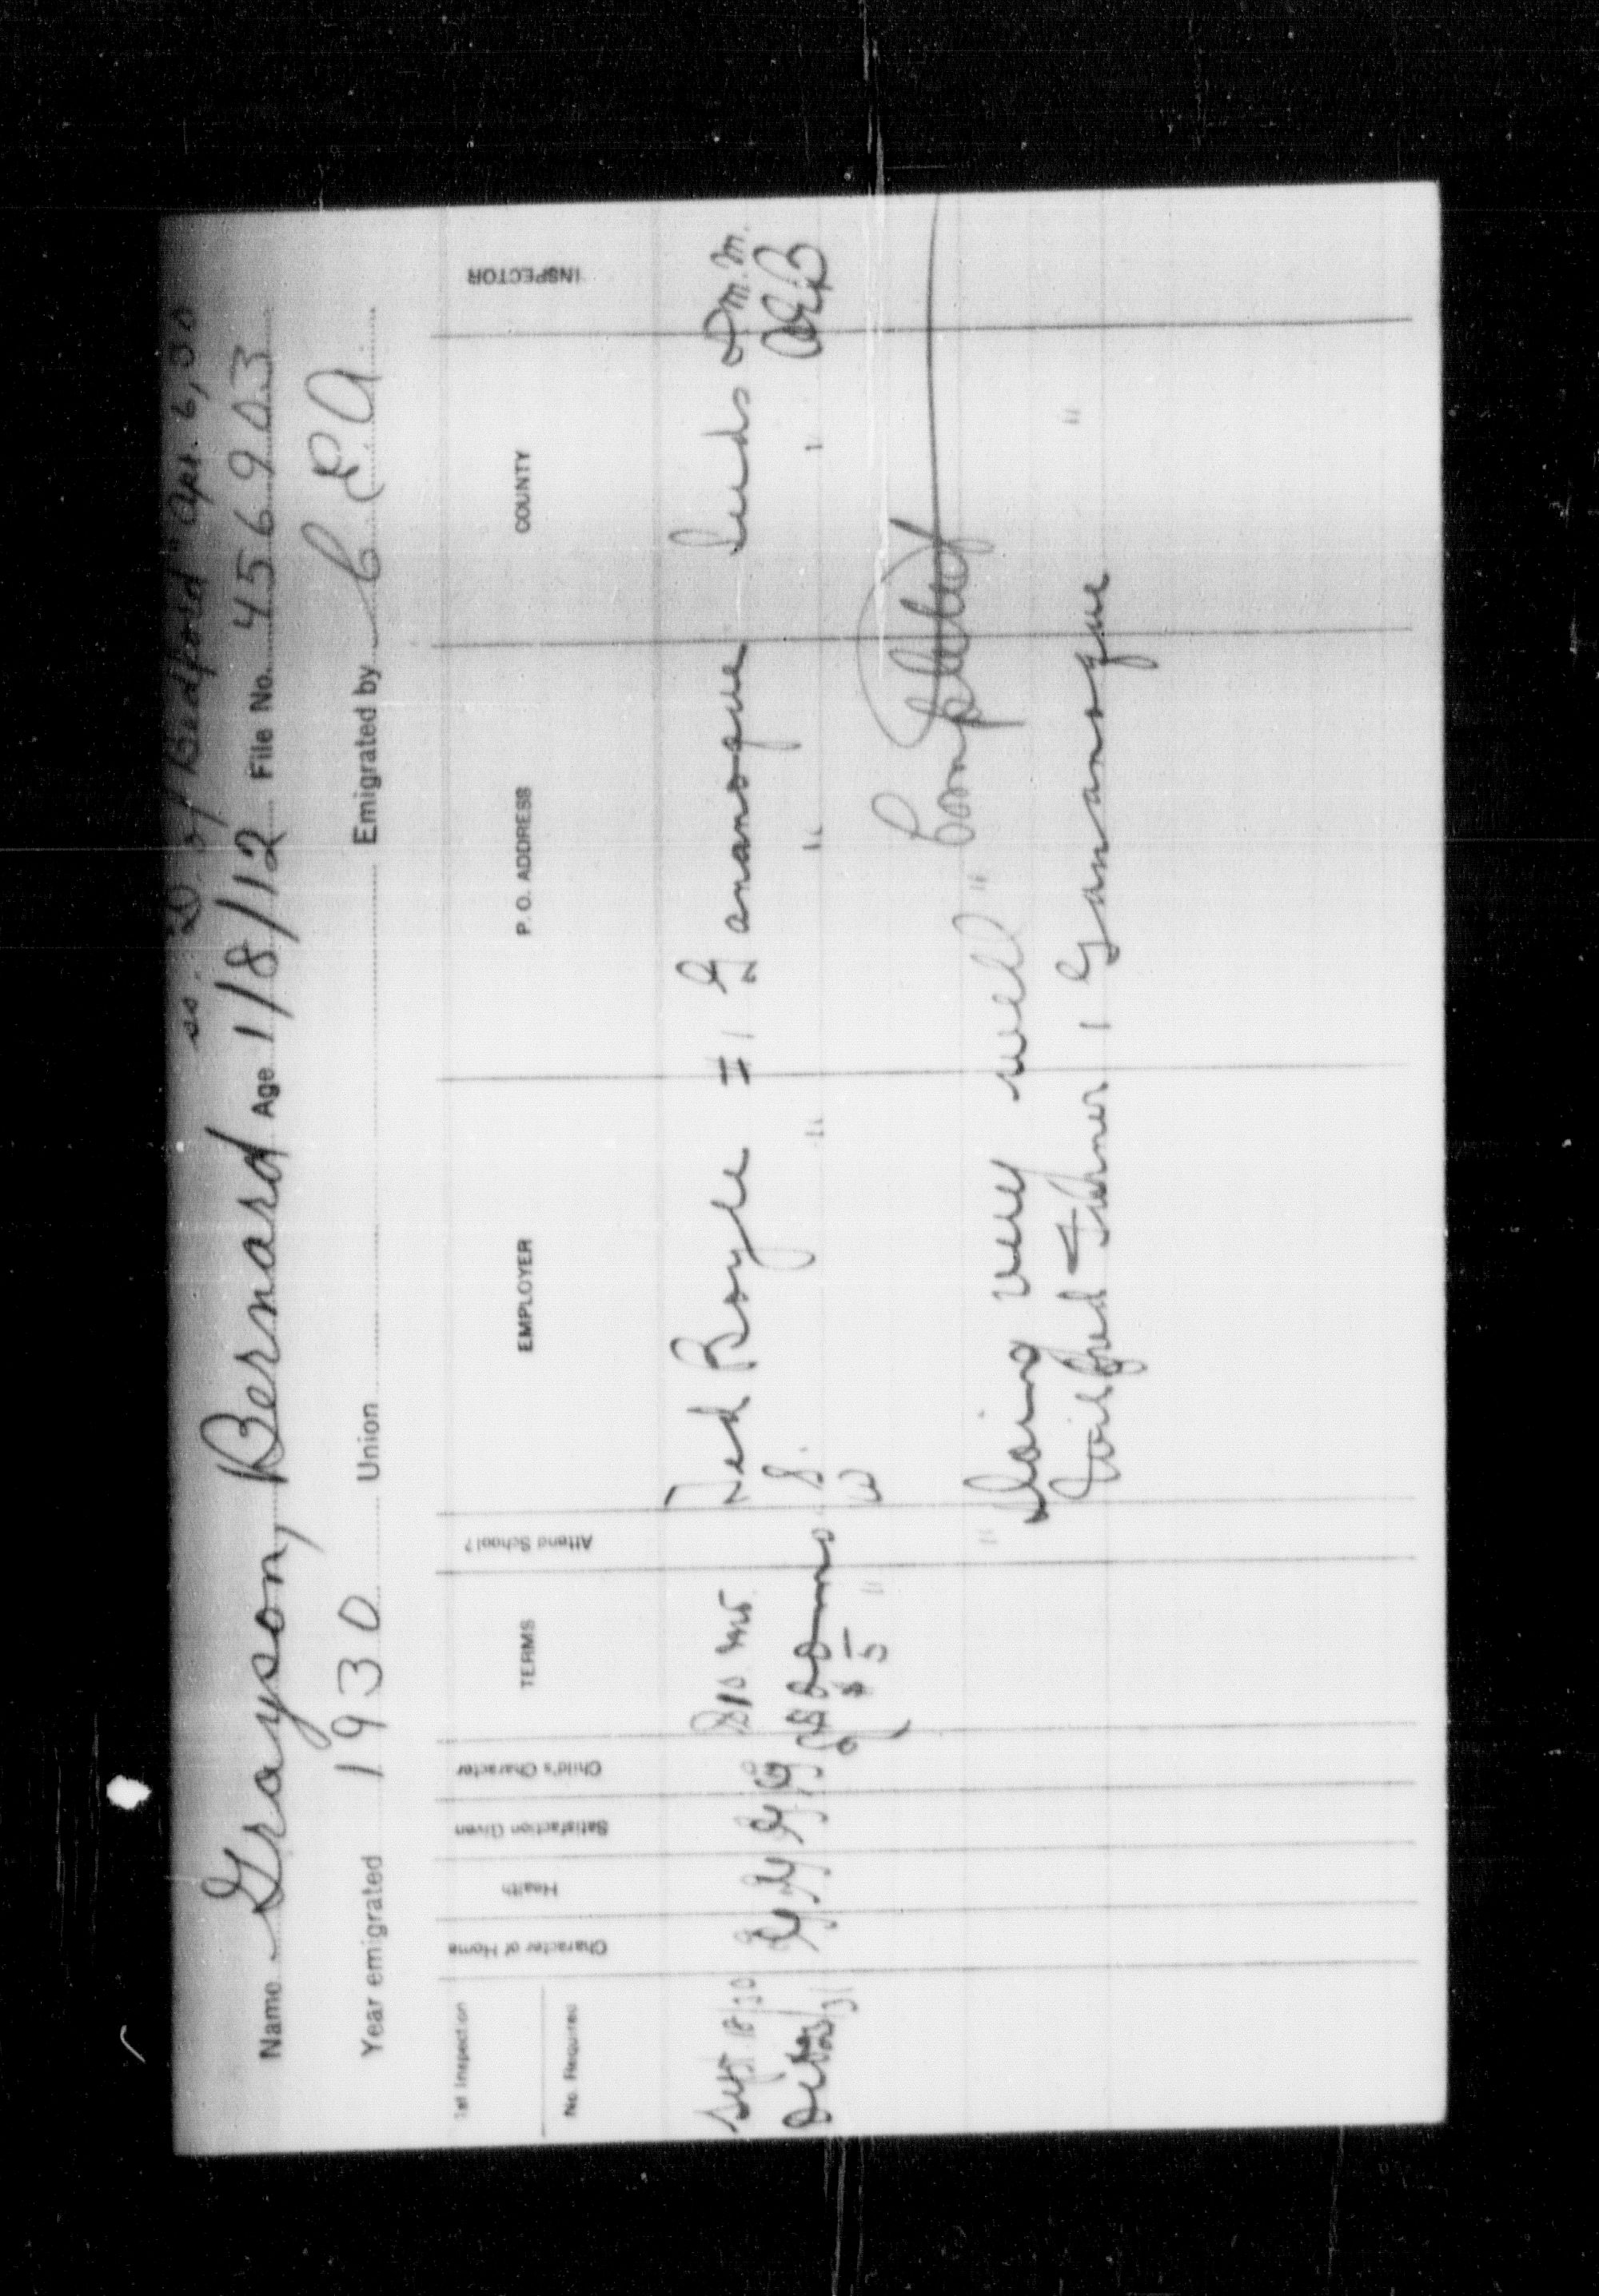 ss. D. of Bedford" Apr. 6, 30
Name Grayson, Bernard Age 1/8/12 File No. 456903
Year emigrated 1930 Union Emigrated by C.E.A.
1st Inspection
No. Required
Character of Home
Health
Satisfaction Given
Child's Character
TERMS
Attend School?
EMPLOYER
P. O. ADDRESS
COUNTY
INSPECTOR
Sept 18/30 G G G G $10 mo. Ted Boyle #1 Gananoque Leeds
/31 G G G S. " " "
$5 " W
" Doing very well " Completed
Wilfred Turner 1 Gananoque "